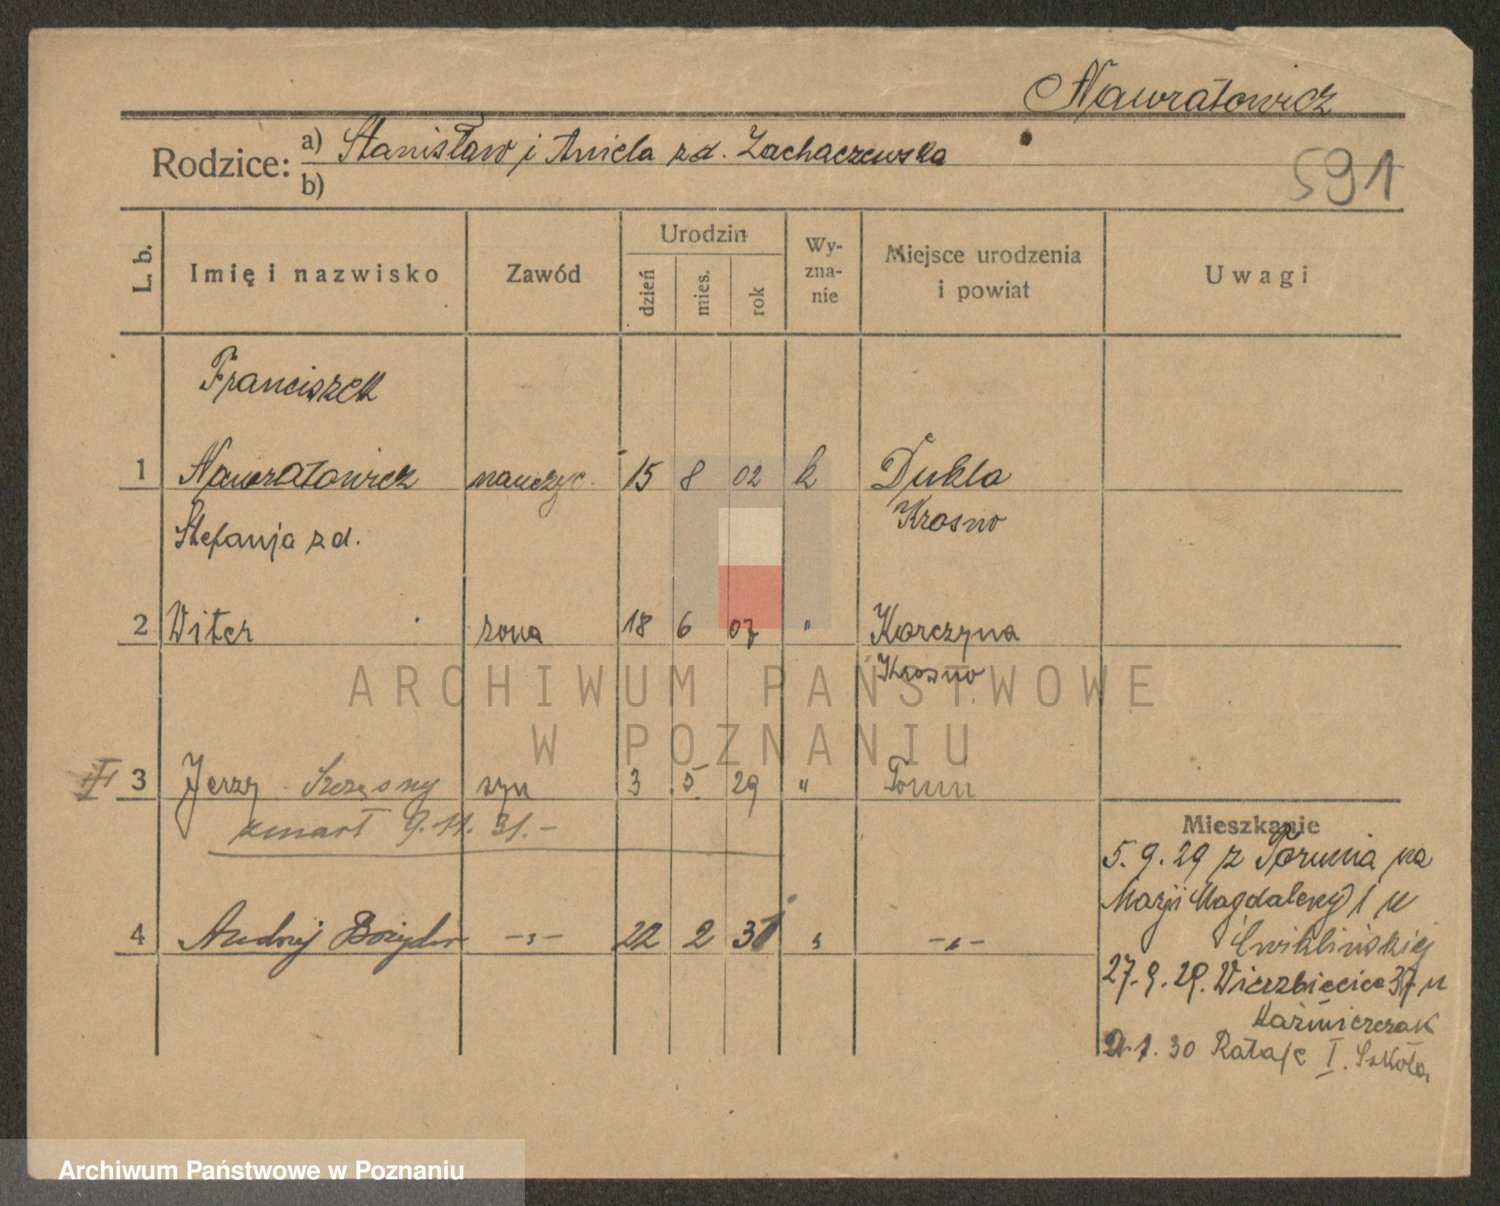 Nawratowicz
Rodzice: a) Stanisław i Aniela zd. Zachaczewska
b)
591
L. b.
Imię i nazwisko
Zawód
Urodzin
dzień
mies.
rok
Wy-
zna-
nie
Miejsce urodzenia
i powiat
Uwagi
Franciszek
1 Nawratowicz nauczyc. 15 8 02 k Dukla
Krosno
Stefanja zd.
2 Witer żona 18 6 07 " Korczyna
Krosno
ARCHIWUM PAŃSTWOWE
W POZNANIU
3 Jerzy Szczęsny syn 3 5. 29 " Toruń
zmarł 9.11.31.-
4 Andrzej Bożydar -"- 22 2 31 " -"-
Mieszkanie
5.9.29 z Torunia na
Marji Magdaleny 1 u
Ćwiklińskiej
27.9.29. Wierzbięcice 37 u
Kaźmierczak
1.30 Rataje I. Szkoła
Archiwum Państwowe w Poznaniu